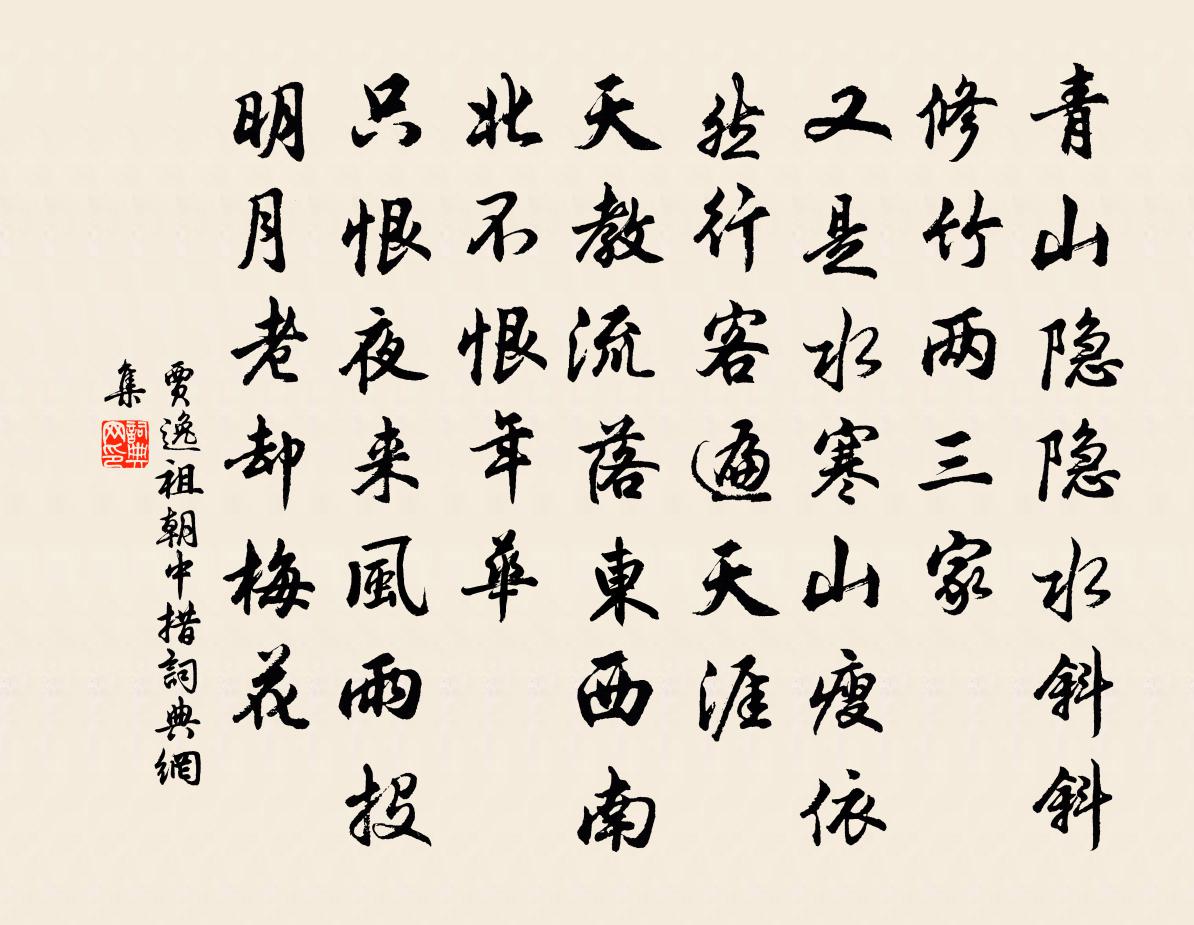 青山隐隐水斜斜
修竹两三家
又是水寒山瘦依
然行客遍天涯
天教流落東西南
北不恨年華
只恨夜来風雨投
明月老却梅花
賈逸祖朝中措詞典網
集
詞典网印